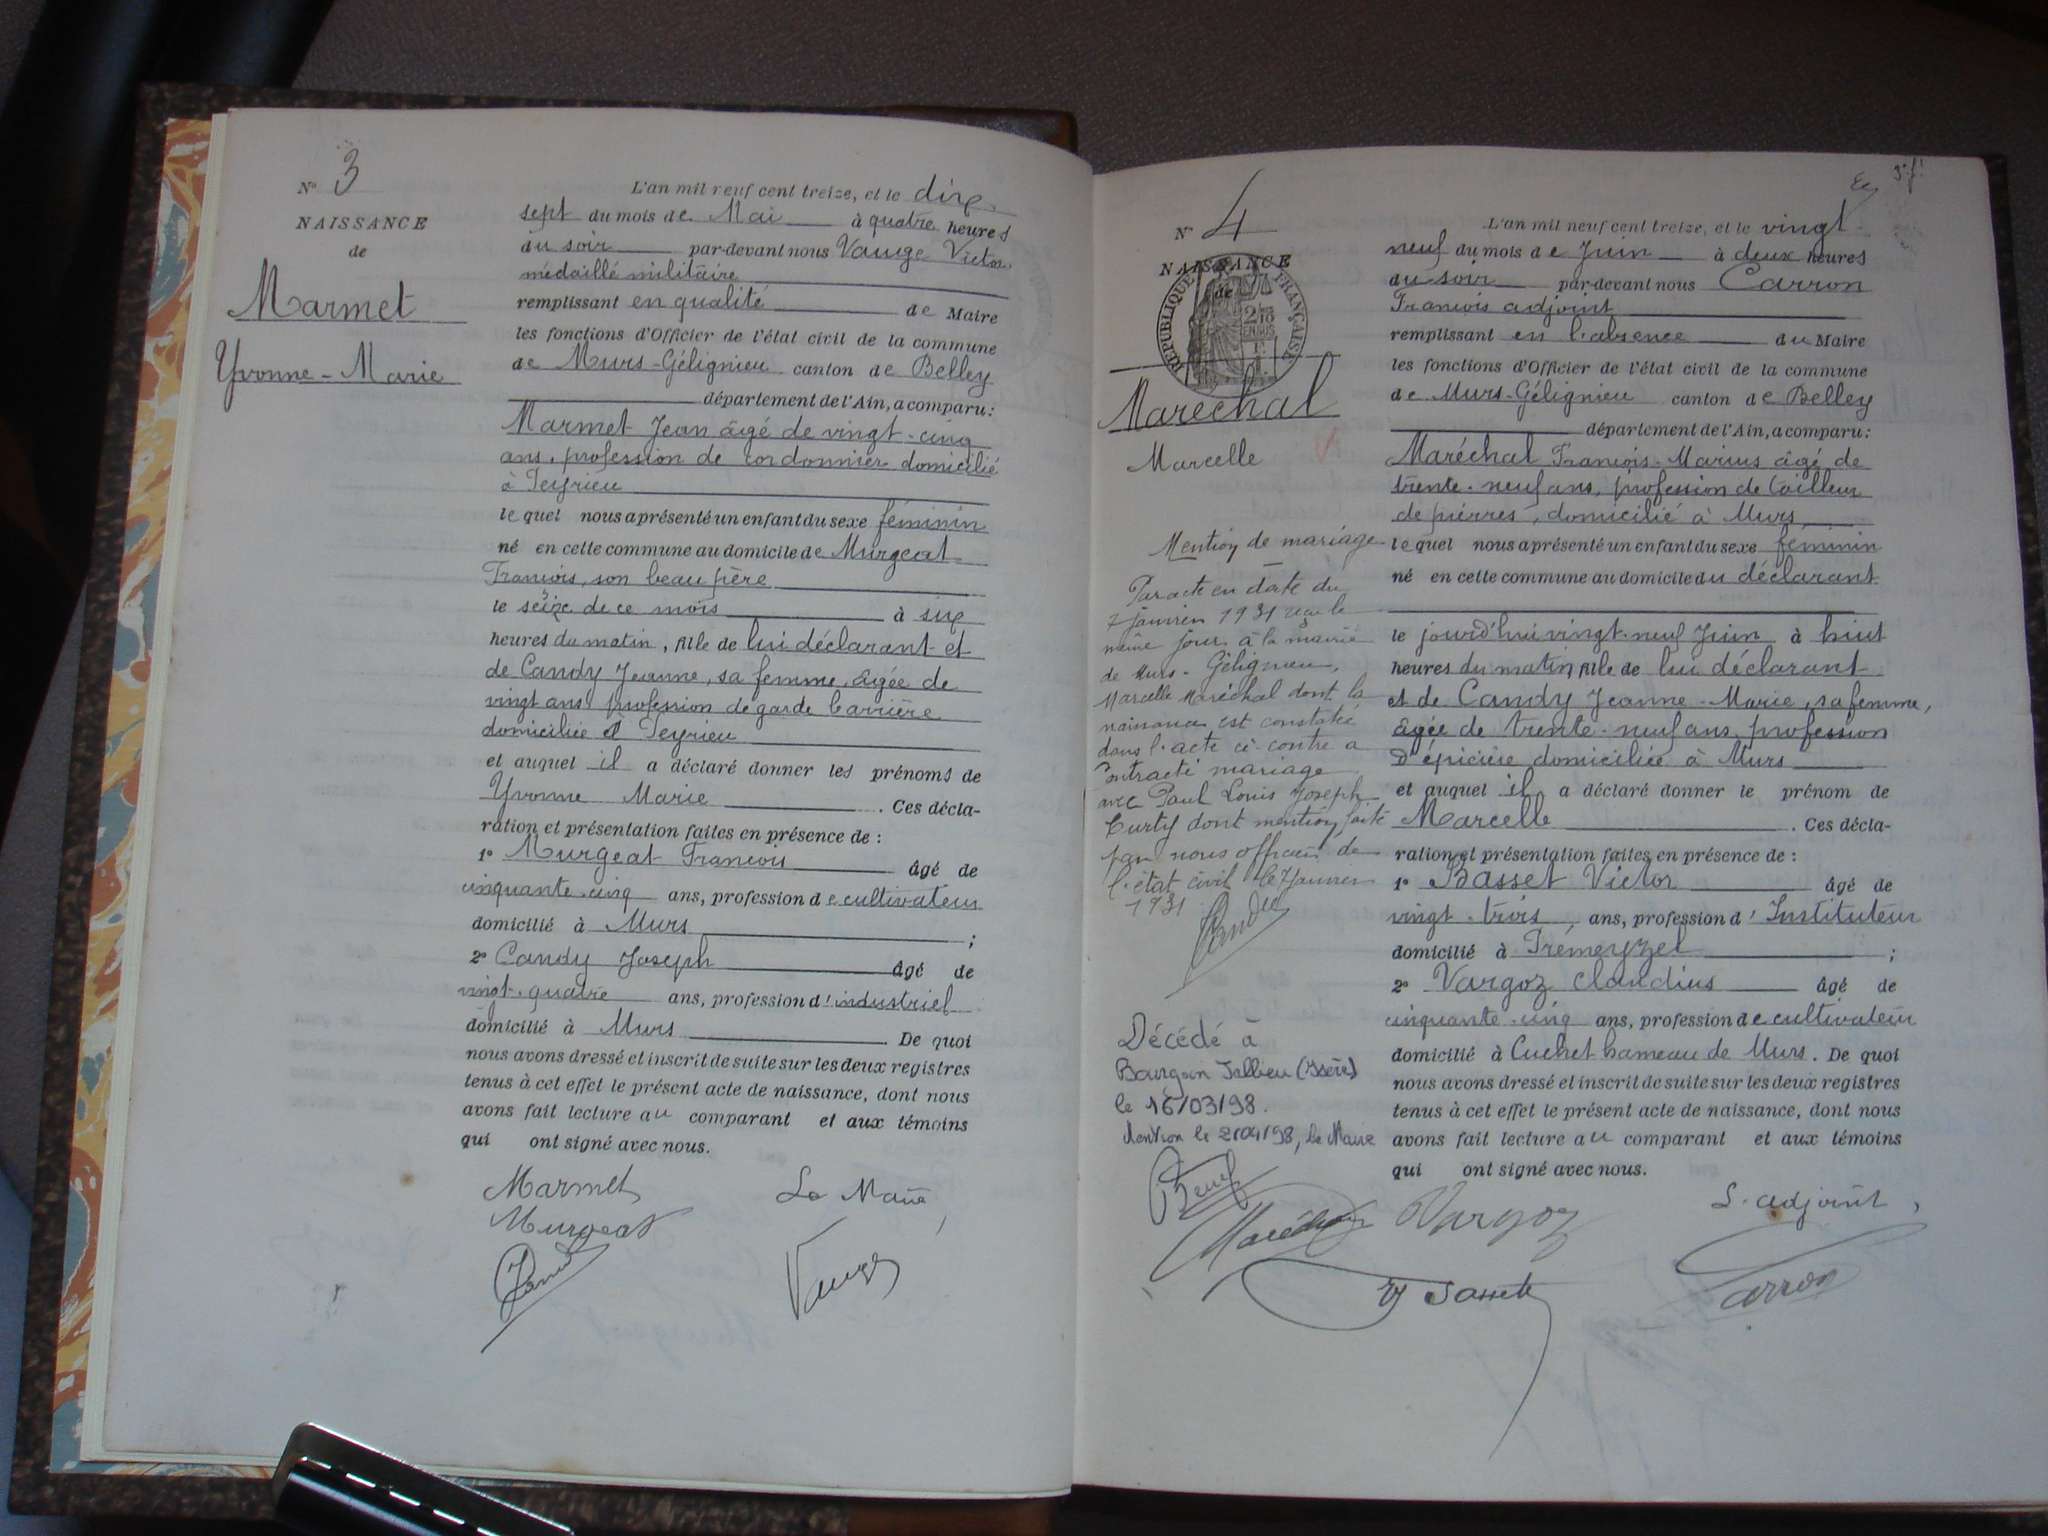 N° 3
NAISSANCE
de
Marmet
Yvonne-Marie
L'an mil neuf cent treize, et le dix
sept du mois de Mai à quatre heures
du soir par-devant nous Vauge Victor,
médaillé militaire
remplissant en qualité de Maire
les fonctions d'Officier de l'état civil de la commune
de Murs-Gélignieu canton de Belley
département de l'Ain, a comparu:
Marmet Jean âgé de vingt-cinq
ans, profession de cordonnier domicilié
à Peyrieu
lequel nous a présenté un enfant du sexe féminin
né en cette commune au domicile de Murgeat
François, son beau père
le seize de ce mois à six
heures du matin, fille de lui déclarant et
de Candy Jeanne, sa femme, âgée de
vingt ans profession de garde barrière
domiciliée à Peyrieu
et auquel il a déclaré donner les prénoms de
Yvonne Marie . Ces décla-
ration et présentation faites en présence de :
1° Murgeat François âgé de
cinquante-cinq ans, profession de cultivateur
domicilié à Murs ;
2° Candy Joseph âgé de
vingt-quatre ans, profession d'industriel
domicilié à Murs . De quoi
nous avons dressé et inscrit de suite sur les deux registres
tenus à cet effet le présent acte de naissance, dont nous
avons fait lecture au comparant et aux témoins
qui ont signé avec nous.
Marmet Le Maire,
Murgeat
Vauge
3e f!
N° 4
NAISSANCE
de
RÉPUBLIQUE FRANÇAISE
Maréchal
Marcelle
Mention de mariage
Par acte en date du
7 janvier 1931 reçu le
même jour à la mairie
de Murs-Gélignieu,
Marcelle Maréchal dont la
naissance est constatée
dans l'acte ci-contre a
contracté mariage
avec Paul Louis Joseph
Curty dont mention faite
par nous officier de
l'état civil le 7 Janvier
1931
Candy
Décédé à
Bourgoin Jallieu (Isère)
le 16/03/98.
Mention le 2/04/98, le Maire
L'an mil neuf cent treize, et le vingt
neuf du mois de Juin à deux heures
du soir par-devant nous Carron
François adjoint
remplissant en l'absence du Maire
les fonctions d'Officier de l'état civil de la commune
de Murs-Gélignieu canton de Belley
département de l'Ain, a comparu:
Maréchal François-Marius âgé de
trente-neuf ans, profession de tailleur
de pierres, domicilié à Murs
lequel nous a présenté un enfant du sexe féminin
né en cette commune au domicile du déclarant
le jourd'hui vingt-neuf Juin à huit
heures du matin fille de lui déclarant
et de Candy Jeanne-Marie, sa femme,
âgée de trente-neuf ans, profession
d'épicière domiciliée à Murs
et auquel il a déclaré donner le prénom de
Marcelle . Ces décla-
ration et présentation faites en présence de :
1° Basset Victor âgé de
vingt-trois, ans, profession d'Instituteur
domicilié à Prémeyzel ;
2° Vargoz Claudius âgé de
cinquante-cinq ans, profession de cultivateur
domicilié à Cuchet hameau de Murs. De quoi
nous avons dressé et inscrit de suite sur les deux registres
tenus à cet effet le présent acte de naissance, dont nous
avons fait lecture au comparant et aux témoins
qui ont signé avec nous.
Maréchal Vargoz L'adjoint,
V Basset Carron